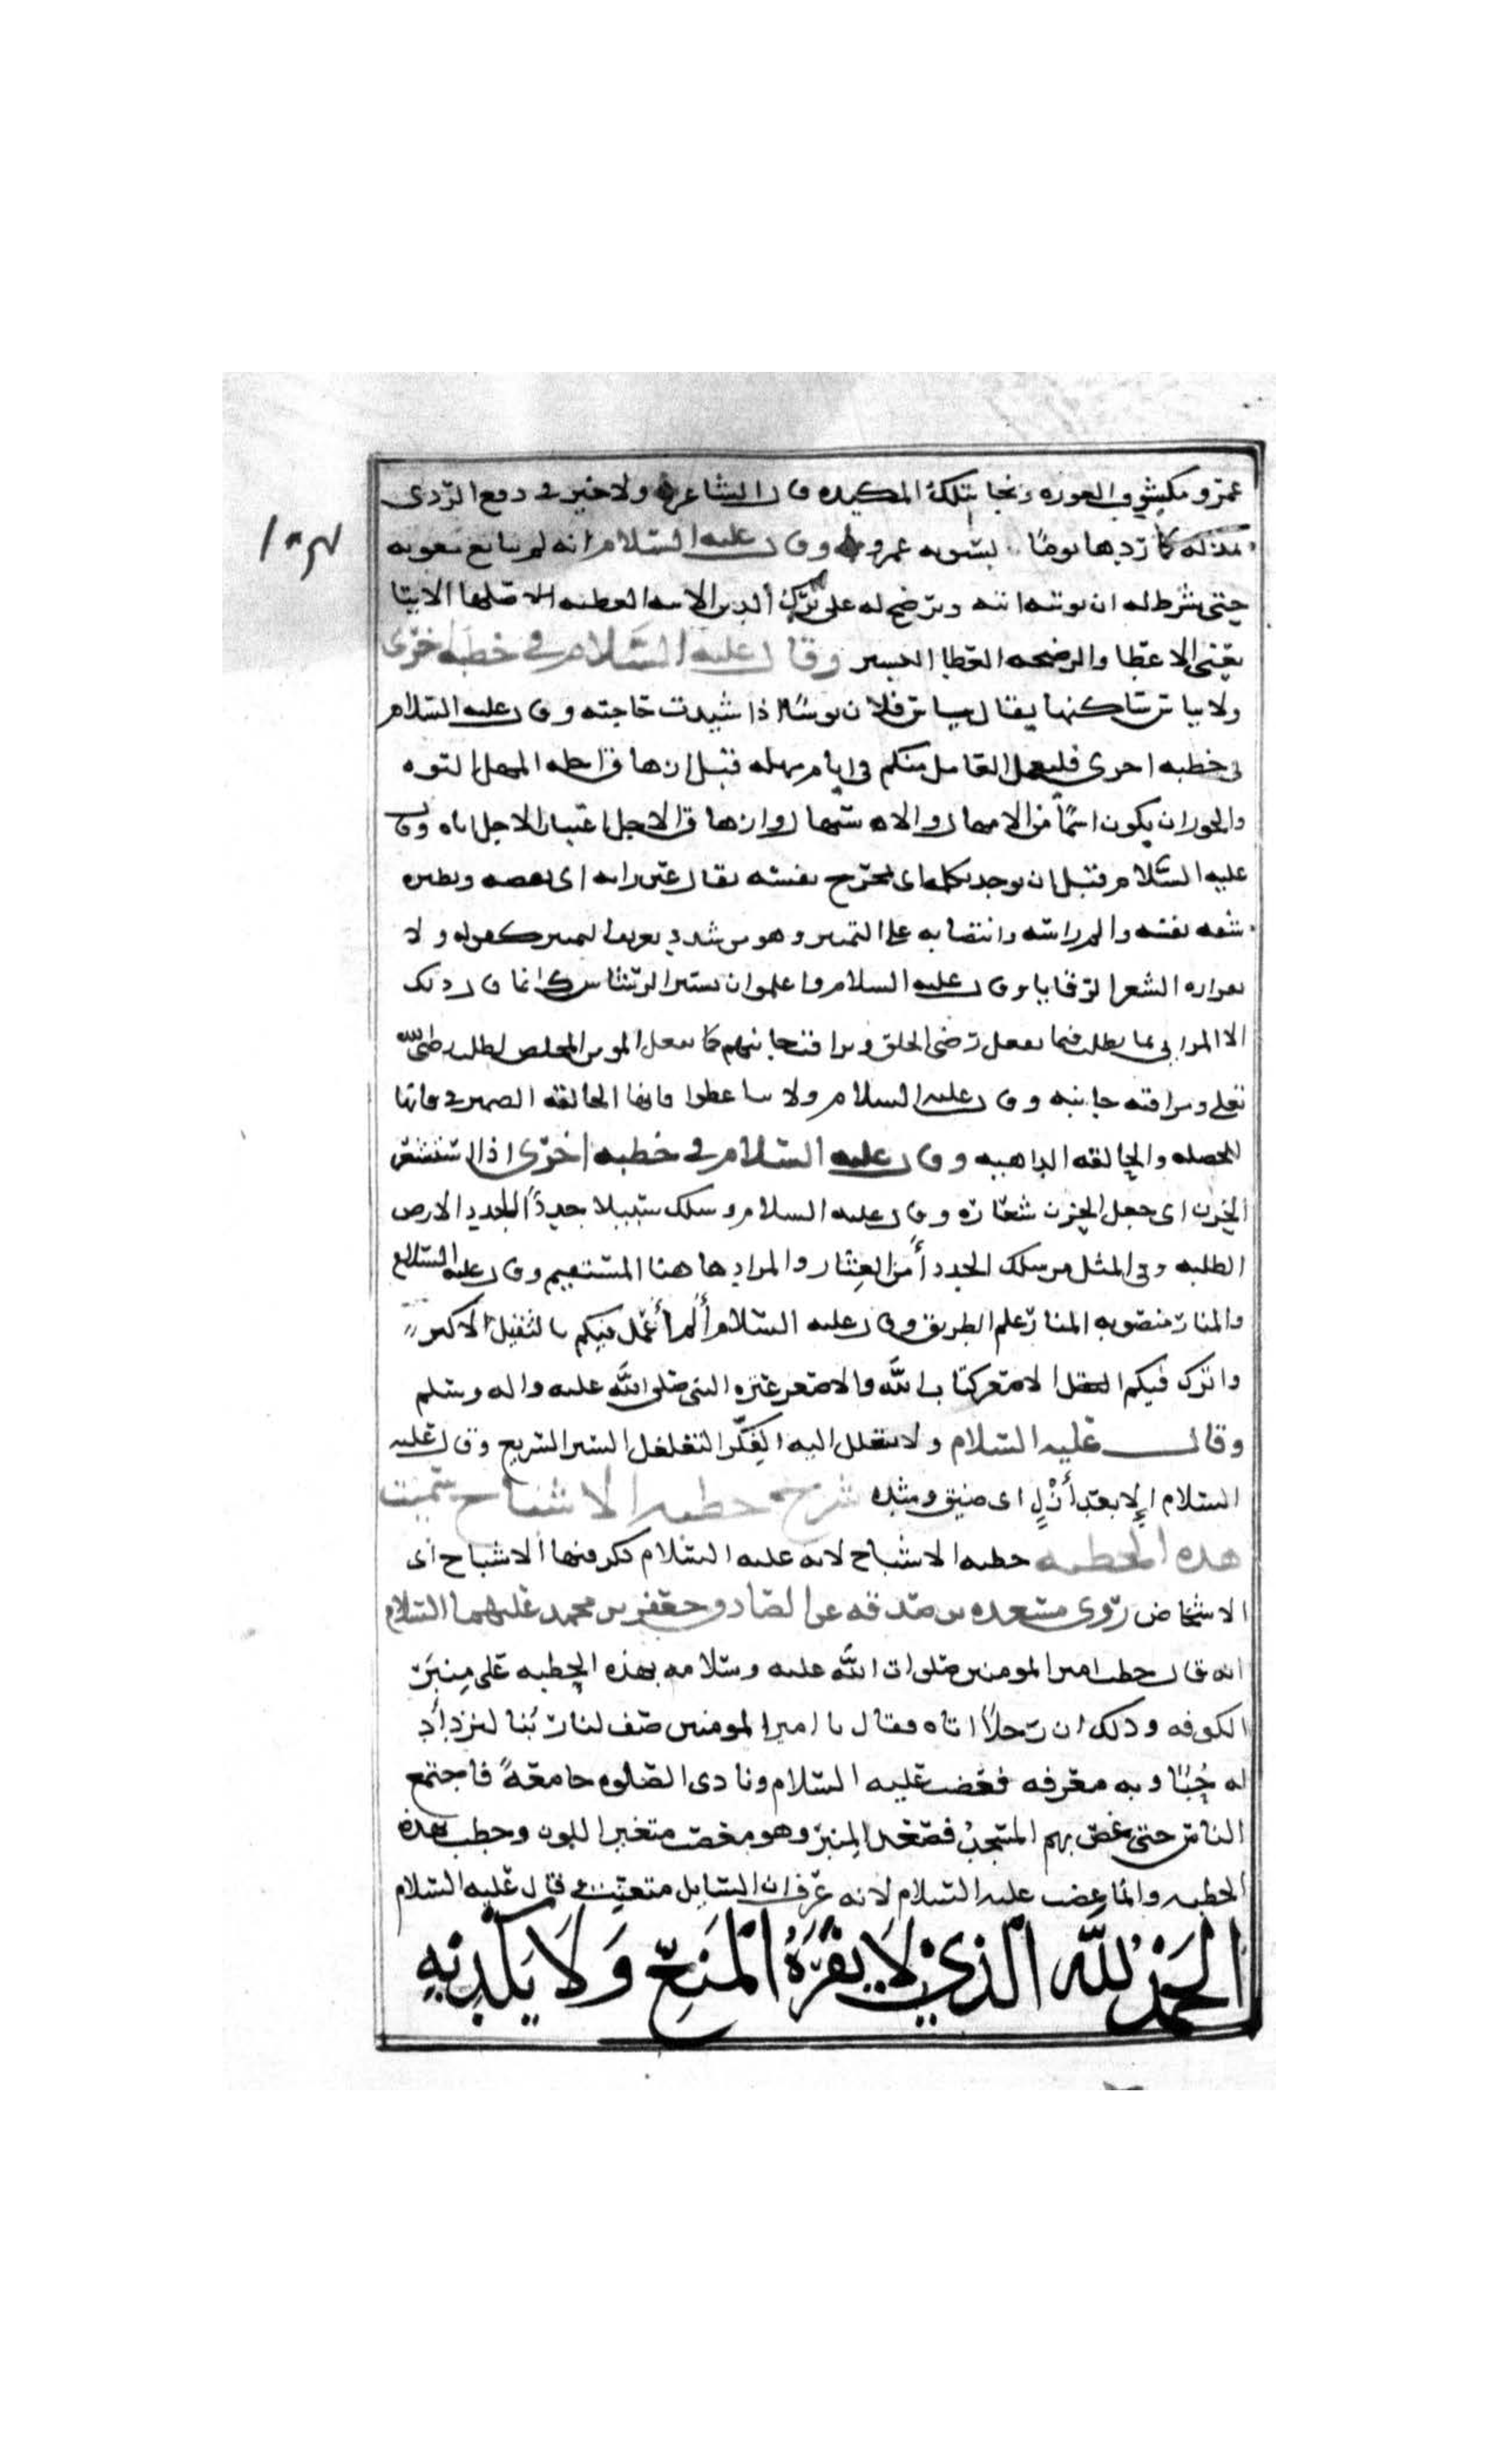 عمرو مكشوف العوره ونجا بتلك المكيده قال الشاعر ولا خير فى دفع الردى
بمذله كما ردها يوما بسوءته عمرو وقال عليه السلام انه لم يبايع معويه
حتى شرط له ان يوتيه اتيه ويرضخ له على ترك الدين الاتيه العطيه اصلها الايتا
يعنى الاعطا والرضخه العطا اليسير وقال عليه السلام فى خطبه اخرى
ولا يباس ساكنها يقال يباس فلان بوسا اذا شيدت حاجته وقال عليه السلام
فى خطبه اخرى فليعمل العامل منكم فى ايام مهله قبل ارهاق اجله المهل التوده
والجوران يكون اسما من الامهال والاه ستمهال وارهاق الاجل اعتبار الاجل اياه وقال
عليه السلام قبل ان يوخذ بكظمه اى بمخرج نفسه يقال غبن رايه اى نقصه ونظيره
سفه نفسه والم راسه وانتصابه على التميير وهو من شديد تعريف المميز كقوله ولا
بفزاره الشعر الرقابا وقال عليه السلام واعلموا ان يسير الريا شرك انما قال ذلك
الان المرايى بما يطلب فيما يفعل رضى الخلق ومرافقه جانبهم كما يفعل المومن المخلص لطلب رضى الله
تعلى ومراقبه جانبه وقال عليه السلام ولا تباغضوا فانها الحالقه الضمير فى فانها
للخصله والحالقه الداهيه وقال عليه السلام فى خطبه اخرى اذ استشعر
الحزن اى جعل الحزن شعاره وقال عليه السلام وسلك سبيلا جددا الجدد الارض
الصلبه وفى المثل من سلك الجدد أمن العثار والمراد هاهنا المستقيم وقال عليه السلام
والمنار منصوبه المنار علم الطريق وقال عليه السلام ألم أعمل فيكم بالثقل الاكبر
واترك فيكم الثقل الاصغر كتاب الله والاصغر عتره النبى صلى الله عليه واله وسلم
وقال عليه السلام ولا يتغلغل اليه الفكر التغلغل السير السريع وقال عليه
السلام الا بعد أزل اى ضيق وشده شرح خطبه الاشباح سميت
هذه الخطبه خطبه الاشباح لانه عليه السلام ذكر فيها الاشباح اى
الاشخاص روى مسعده بن صدقه عن الصادق جعفر بن محمد عليهما السلام
انه قال خطب امير المومنين صلوات الله عليه وسلامه بهذه الخطبه على منبر
الكوفه وذلك ان رجلا اتاه فقال يا امير المومنين صف لنا ربنا لنزداد
له حبا وبه معرفه فغضب عليه السلام ونادى الصلوه جامعه فاجتمع
الناس حتى غص بهم المسجد فصعد المنبر وهو مغضب متغير اللون وخطب هذه
الخطبه وانما غضب عليه السلام لانه عرف ان السايل متعنت قال عليه السلام
الحمد لله الذي لا يفره المنع ولا يكديه